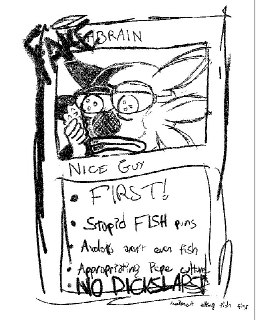 BRAIN
NICE GUY
• FIRST!
• Stupid FISH puns
• Axolotls aren't even fish
• Appropriating Pepe culture
NO DICKSLAPS!